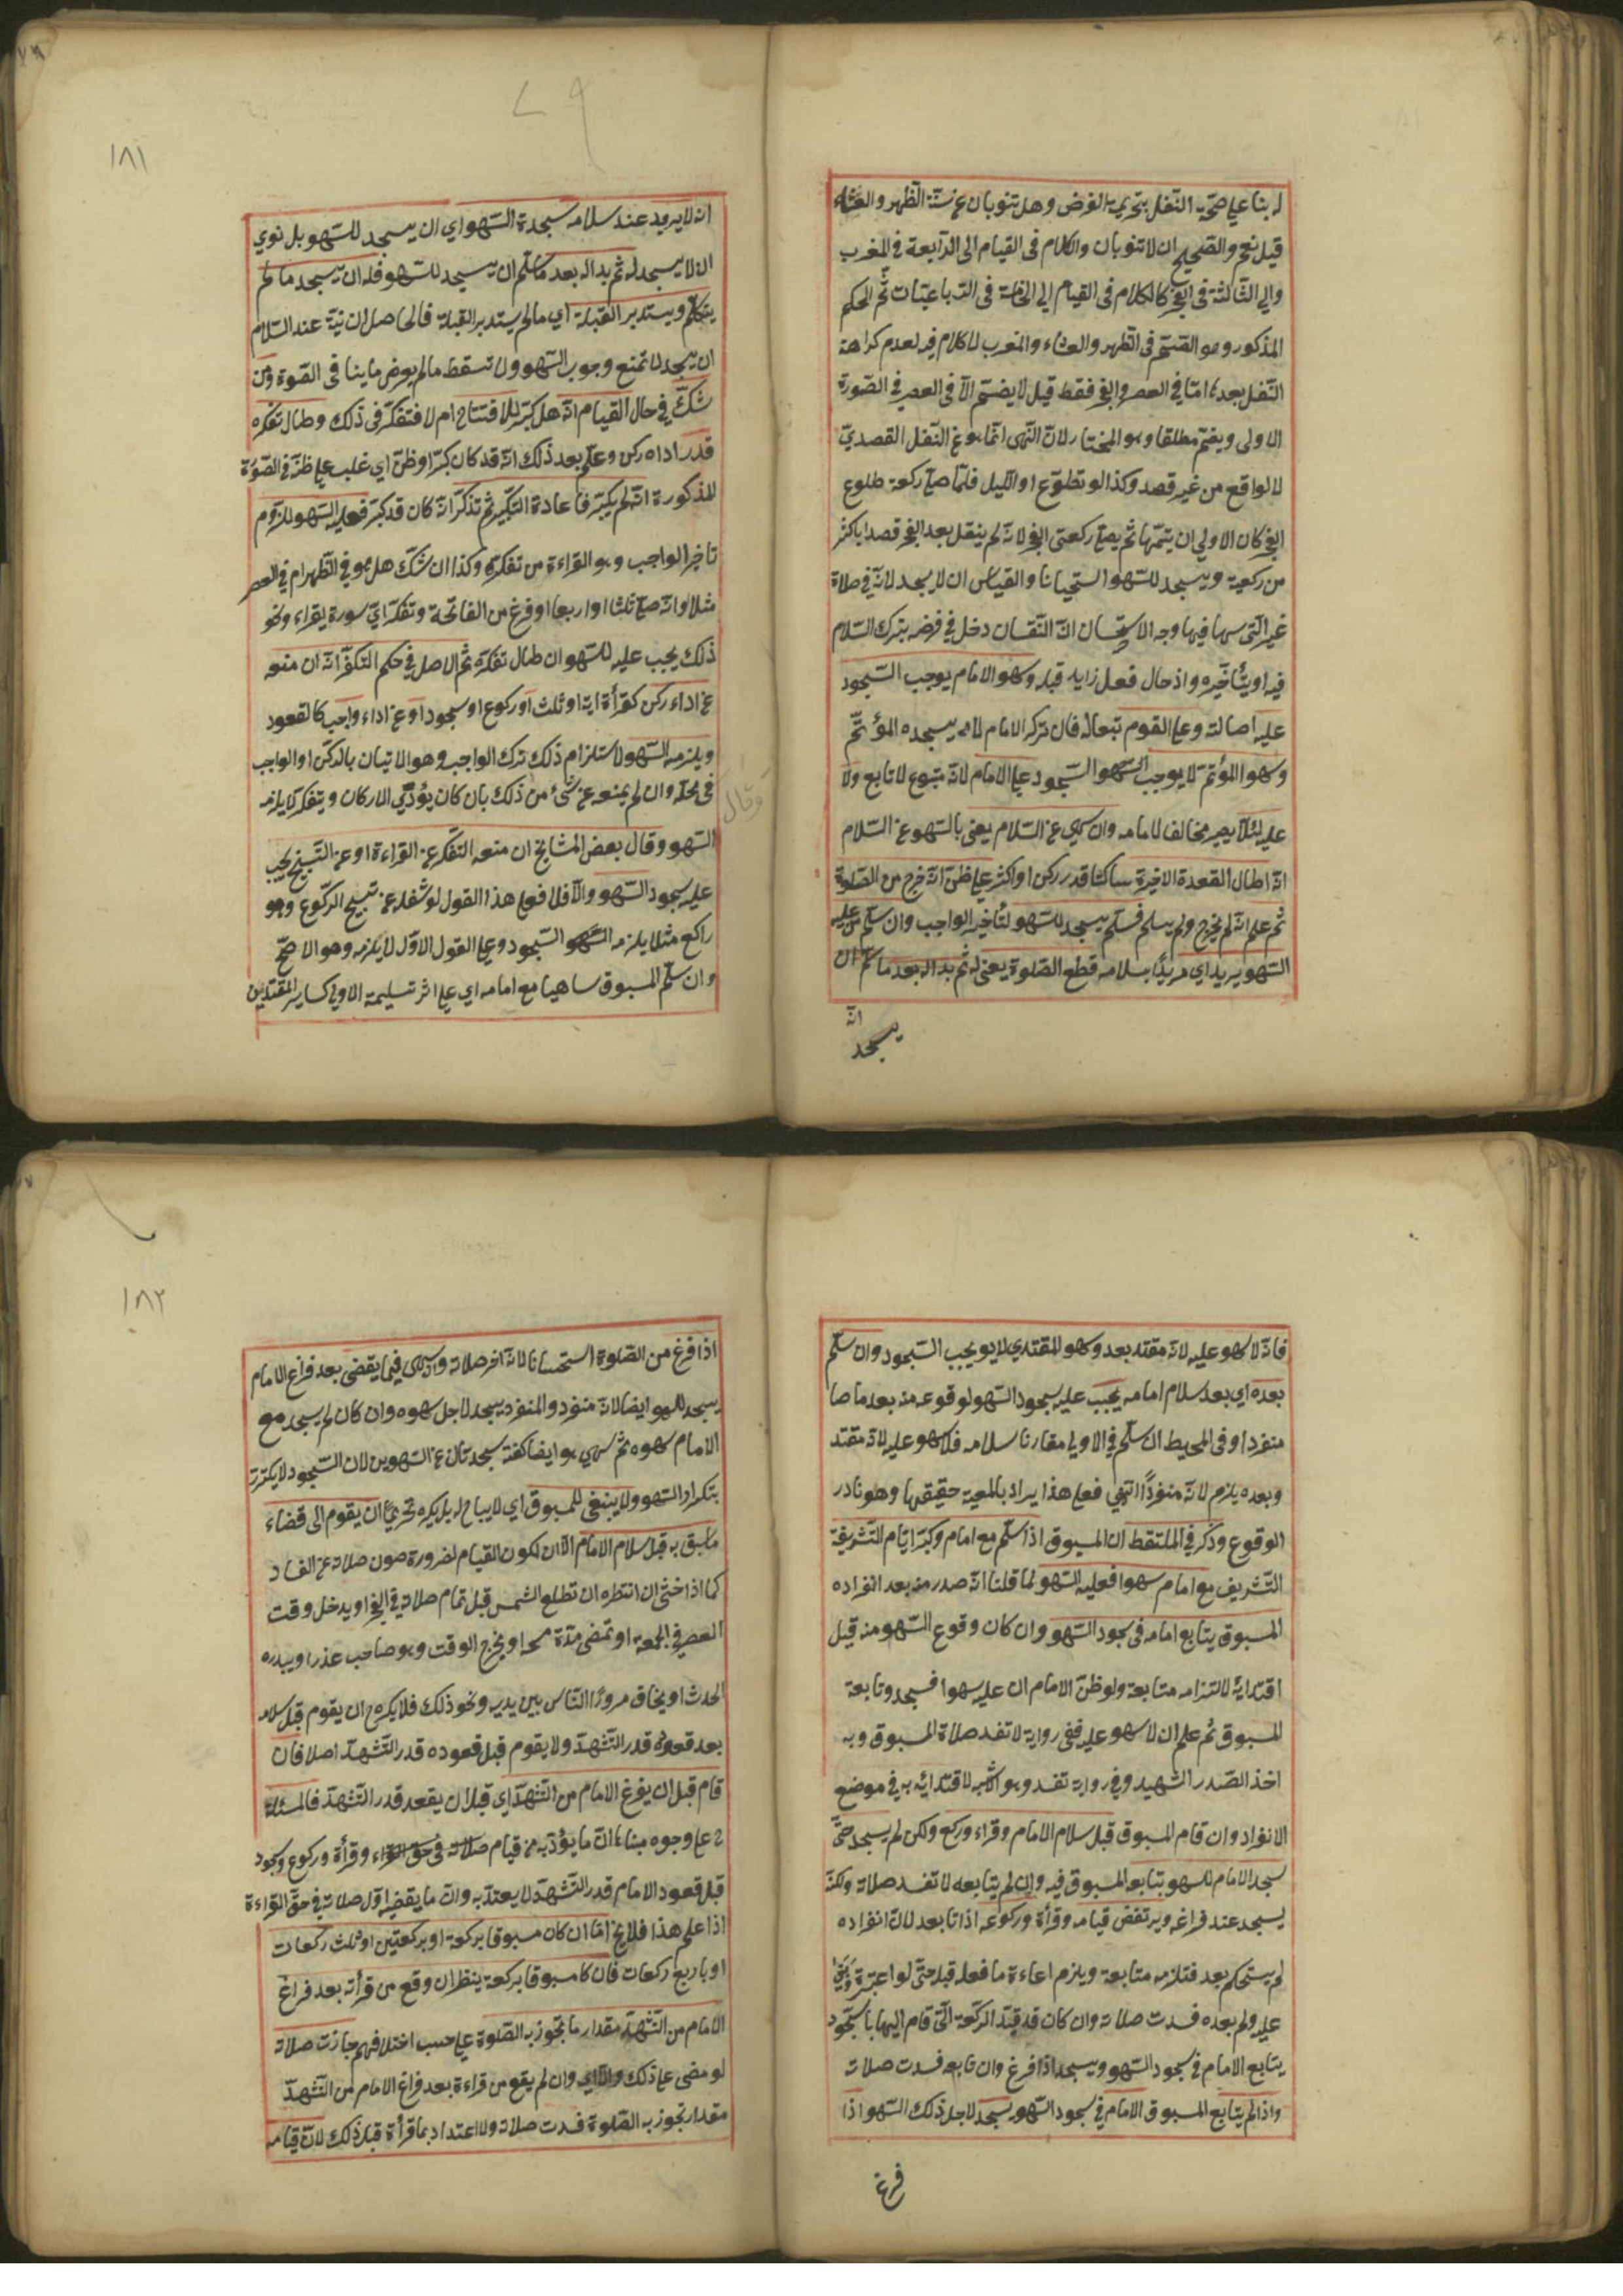 له بناء علي صحة النفل بتحريمة الفرض وهل تنوبان عن سنة الظهر والعشاء
قيل نعم والصحيح ان لا تنوبان والكلام في القيام الي الرابعة في المغرب
والي الثالثة في الفجر كالكلام في القيام الي الخامسة في الرباعيات ثم الحكم
المذكور وهو الضم في الظهر والعشاء والمغرب لا كلام فيه لعدم كراهة
النفل بعدها امّا في العصر والفجر فقط قيل لا يضم الا في العصر في الصورة
الاولى ويضم مطلقا وهو المختار لان النهى انما هو عن النفل القصديّ
لا الواقع من غير قصد وكذا لو تطوع اخر الليل فلما صلي ركعة طلوع
الفجر كان الاولي ان يتمها ثم يصلي ركعتى الفجر لانه لم ينتفل بعد الفجر قصدا باكثر
من ركعة ويسجد للسهو استحسانا والقياس ان لا يسجد لانه في صلاة
غير التى سها فيها وجه الاستحسان ان النقصان دخل في فرضه بترك السلام
فيه او بتأخيره واذ حال فعل زايد قبله وسهو الامام يوجب السجود
عليه اصالة وعلي القوم تبعا له فان تركه الامام لا يسجده المؤتم
وسهو المؤتم لا يوجب السهو السجود علي الامام لانه متبوع لا تابع ولا
عليه لئلا يصير مخالفا لامامه وان سهي عن السلام يعني بالسهو عن السلام
انه اطال القعدة الاخيرة ساكتا قدر ركن او اكثر علي ظن انه خرج من الصلوة
ثم علم انه لم يخرج ولم يسلم فسلم يسجد للسهو لتأخير الواجب وان سلم من عليه
السهو يريد اي مريدًا بسلامه قطع الصلوة يعني له ثم بدا له بعد ما سلم ان
انه
يسجد
١٨١
ان لا يريد عند سلامه سجدة السهو اي ان يسجد للسهو بل نوي
ان لا يسجد له ثم بدا له بعد ما سلم ان يسجد للسهو فله ان يسجد ما لم
يتكلم ويستدبر القبلة اي مالم يستدبر القبلة فالحاصل ان نية عند السلام
ان يسجد لا تمنع وجوب السهو ولا تسقط مالم يعرض ما ينا في الصلوة ومن
شكّ في حال القيام انه هل كبر للافتتاح ام لا فتفكر في ذلك وطال تفكره
قدر اداء ركن وعلم بعد ذلك انه قد كان كبر او ظن اي غلب علي ظنه في الصورة
المذكورة انه لم يكبر فاعادة التكبير ثم تذكر انه كان قد كبر فعليه السهو للزوم
تاخير الواجب وهو القراءة من تفكره وكذا ان شك هل هو في الظهر ام في العصر
مثلا او انه صلي ثلثا او اربعا او فرغ من الفاتحة وتفكر اي سورة يقراء ونحو
ذلك يجب عليه للسهو ان طال تفكره ثم الاصل في حكم التفكر انه ان منعه
عن اداء ركن كقرأة اية او ثلث او ركوع او سجود او عن اداء واجب كالقعود
ويلزمه السهو لاستلزام ذلك ترك الواجب وهو الاتيان بالركن او الواجب
في محله وان لم يمنعه عن شئ من ذلك بان كان يؤدّي الاركان ويتفكر لا يلزمه
السهو وقال بعض المشايخ ان منعه التفكر عن القراءة او عن التسبيح يجب
عليه سجود السهو والا فلا فعلي هذا القول لو شغله عن تسبيح الركوع وهو
راكع مثلا يلزمه السهو السجود وعلي القول الاول لا يلزمه وهو الاصح
وان سلم المسبوق ساهيا مع امامه اي علي اثر تسليمة الاولي كساير المقتدين
وقال
فانه لا سهو عليه لانه مقتد بعد وسهو المقتدي لا يوجب السجود وان سلم
بعده اي بعد سلام امامه يجب عليه سجود السهو لوقوعه منه بعد ما صا
منفردا وفى المحيط ان سلم في الاولي مقارنا سلامه فلا سهو عليه لانه مقتد
وبعده يلزم لانه منفردًا انتهي فعلي هذا يراد بالمعية حقيقتها وهو نادر
الوقوع وذكر في الملتقط ان المسبوق اذا سلم مع امام وكبر ايام التشريق
التشريف مع امام سهوا فعليه السهو لما قلنا انه صدر منه بعد انفراده
المسبوق يتابع امامه في سجود السهو وان كان وقوع السهو منه قبل
اقتدايه لالتزامه متابعة ولو ظن الامام ان عليه سهوا فسجد وتابعة
المسبوق ثم علم ان لا سهو عليه ففى رواية لا تفسد صلاة المسبوق وبه
اخذ الصدر الشهيد وفي رواية تفسد وهو الاشبه لاقتدائه به في موضع
الانفراد وان قام المسبوق قبل سلام الامام وقراء وركع ولكن لم يسجد حتى
سجد الامام للسهو يتابع المسبوق فيه وان لم يتابعه لا تفسد صلاته ولكنه
يسجد عند فراغه ويرتفض قيامه وقرأة وركوعه اذا تابعه لان انفراده
لم يستحكم بعد فتلزمه متابعة ويلزم اعادة ما فعله قبله حتى لو اعتبره
عليه ولم يعده فسدت صلاته وان كان قد قيد الركعة التى قام اليها بالسجود
يتابع الامام في سجود السهو ويسجد اذا فرغ وان تابعه فسدت صلاته
واذا لم يتابع المسبوق الامام في سجود السهو يسجد لاجل ذلك السهو اذا
فرغ
١٨٢
اذا فرغ من الصلوة استحسانا لانه اخر صلاته واذ سهي فيما يقضى بعد فراغ الامام
يسجد للسهو ايضا لانه منفرد والمنفرد يسجد لاجل سهوه وان كان لم يسجد مع
الامام سهوه ثم سهي هو ايضا كفته سجدتان عن السهوين لان السجود لا يتكرر
بتكرار السهو ولا ينبغى للمسبوق اي لا يباح له بل يكره تحريمًا ان يقوم الى قضاء
ما سبق به قبل سلام الامام الا ان لكون القيام لضرورة صون صلاته عن الفساد
كما اذا خشى ان انتظره ان تطلع الشمس قبل تمام صلاته في الفجر او يدخل وقت
العصر في الجمعة او تمضى مدة مسحه او يخرج الوقت وهو صاحب عذر او يبدره
الحدث او يخاف مرورًا الناس بين يديه ونحو ذلك فلا يكره ح ان يقوم قبل سلامه
بعد قعوده قدر التشهد ولا يقوم قبل قعوده قدر التشهد اصلا فان
قام قبل ان يفرغ الامام من التشهد اي قبل ان يقعد قدر التشهد فالمسئلة
ح علي وجوه بناء ان ما يؤديه من قيام صلاته في حق وقرأة وركوع وسجود
قبل قعود الامام قدر التشهد لا يعتد به وان ما يقضيه اول صلاته في حق القراءة
اذا علم هذا فلا يخ امّا ان كان مسبوقا بركعة او بركعتين او ثلث ركعات
او باربع ركعات فان كا مسبوقا بركعة ينظر ان وقع من قرأته بعد فراغ
الامام من التشهد مقدار ما تجوز به الصلوة علي حسب اختلافهم جازت صلاته
لو مضى علي ذلك والا اي وان لم يقع من قراءة بعد فراغ الامام من التشهد
مقدار تجوز به الصلوة فسدت صلاته ولا اعتداد بما قرأة قبل ذلك لان قيامه